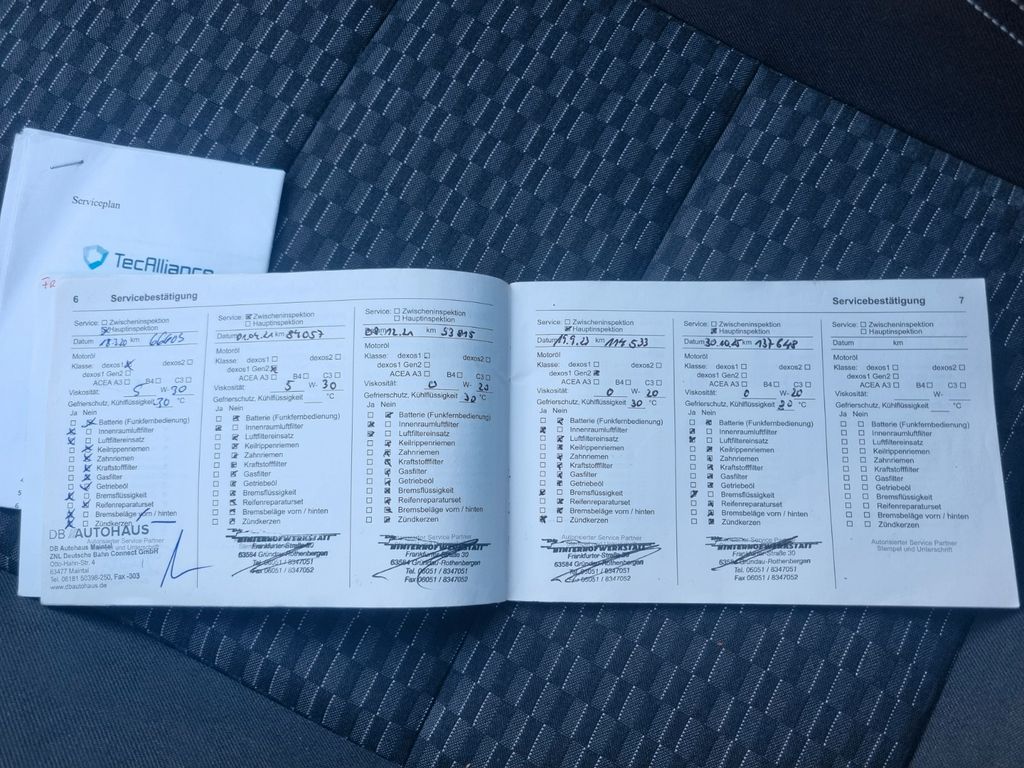 Serviceplan
TecAlliance
6 Servicebestätigung
Service: Zwischeninspektion
Hauptinspektion
Datum km 66405
Motoröl
Klasse: dexos1 dexos2
dexos1 Gen2
ACEA A3 B4 C3
Viskosität: 5 W-30
Gefrierschutz, Kühlflüssigkeit 30 °C
Ja Nein
Batterie (Funkfernbedienung)
Innenraumluftfilter
Luftfiltereinsatz
Keilrippenriemen
Zahnriemen
Kraftstofffilter
Gasfilter
Getriebeöl
Bremsflüssigkeit
Reifenreparaturset
Bremsbeläge vorn / hinten
Zündkerzen
DB AUTOHAUS
Autorisierter Service Partner
DB Autohaus Maintal
ZNL Deutsche Bahn Connect GmbH
Otto-Hahn-Str. 4
63477 Maintal
Tel. 06181 50398-250, Fax -003
www.dbautohaus.de
Service: Zwischeninspektion
Hauptinspektion
Datum 01.04.21 km 84057
Motoröl
Klasse: dexos1 dexos2
dexos1 Gen2
ACEA A3 B4 C3
Viskosität: 5 W-30
Gefrierschutz, Kühlflüssigkeit °C
Ja Nein
Batterie (Funkfernbedienung)
Innenraumluftfilter
Luftfiltereinsatz
Keilrippenriemen
Zahnriemen
Kraftstofffilter
Gasfilter
Getriebeöl
Bremsflüssigkeit
Reifenreparaturset
Bremsbeläge vorn / hinten
Zündkerzen
Frankfurter-Straße 30
63584 Gründau-Rothenbergen
Tel. 06051 / 8347051
Fax 06051 / 8347052
Service: Zwischeninspektion
Hauptinspektion
12.21 km 93815
Motoröl
Klasse: dexos1 dexos2
dexos1 Gen2
ACEA A3 B4 C3
Viskosität: 0 W-20
Gefrierschutz, Kühlflüssigkeit 30 °C
Ja Nein
Batterie (Funkfernbedienung)
Innenraumluftfilter
Luftfiltereinsatz
Keilrippenriemen
Zahnriemen
Kraftstofffilter
Gasfilter
Getriebeöl
Bremsflüssigkeit
Reifenreparaturset
Bremsbeläge vorn / hinten
Zündkerzen
Autorisierter Service Partner
WINTERHOFWERKSTATT
Frankfurter-Straße 30
63584 Gründau-Rothenbergen
Tel. 06051 / 8347051
Fax 06051 / 8347052
Servicebestätigung 7
Service: Zwischeninspektion
Hauptinspektion
Datum 15.9.23 km 114533
Motoröl
Klasse: dexos1 dexos2
dexos1 Gen2
ACEA A3 B4 C3
Viskosität: 0 W-20
Gefrierschutz, Kühlflüssigkeit 30 °C
Ja Nein
Batterie (Funkfernbedienung)
Innenraumluftfilter
Luftfiltereinsatz
Keilrippenriemen
Zahnriemen
Kraftstofffilter
Gasfilter
Getriebeöl
Bremsflüssigkeit
Reifenreparaturset
Bremsbeläge vorn / hinten
Zündkerzen
Autorisierter Service Partner
WINTERHOFWERKSTATT
Frankfurter-Straße 30
63584 Gründau-Rothenbergen
Tel. 06051 / 8347051
Fax 06051 / 8347052
Service: Zwischeninspektion
Hauptinspektion
Datum 30.10.25 km 137648
Motoröl
Klasse: dexos1 dexos2
dexos1 Gen2
ACEA A3 B4 C3
Viskosität: 0 W-20
Gefrierschutz, Kühlflüssigkeit °C
Ja Nein
Batterie (Funkfernbedienung)
Innenraumluftfilter
Luftfiltereinsatz
Keilrippenriemen
Zahnriemen
Kraftstofffilter
Gasfilter
Getriebeöl
Bremsflüssigkeit
Reifenreparaturset
Bremsbeläge vorn / hinten
Zündkerzen
Autorisierter Service Partner
WINTERHOFWERKSTATT
Frankfurter-Straße 30
63584 Gründau-Rothenbergen
Tel. 06051 / 8347051
Fax 06051 / 8347052
Service: Zwischeninspektion
Hauptinspektion
Datum km
Motoröl
Klasse: dexos1 dexos2
dexos1 Gen2
ACEA A3 B4 C3
Viskosität: W-
Gefrierschutz, Kühlflüssigkeit °C
Ja Nein
Batterie (Funkfernbedienung)
Innenraumluftfilter
Luftfiltereinsatz
Keilrippenriemen
Zahnriemen
Kraftstofffilter
Gasfilter
Getriebeöl
Bremsflüssigkeit
Reifenreparaturset
Bremsbeläge vorn / hinten
Zündkerzen
Autorisierter Service Partner
Stempel und Unterschrift